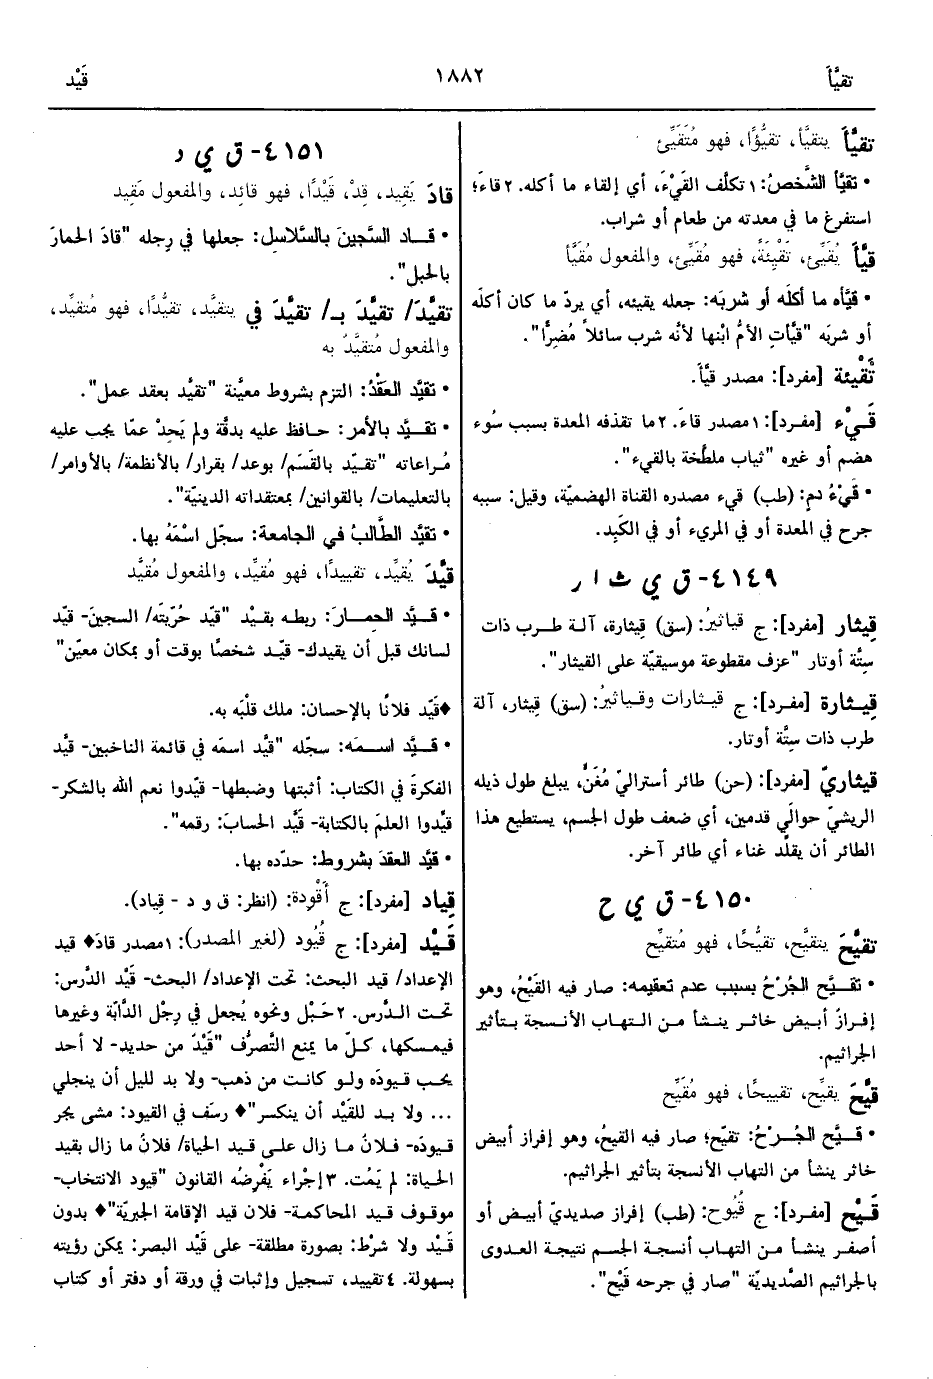 تقيَّأ
١٨٨٢
قَيْد
تقيَّأَ يتقيَّأ، تقيُّؤًا، فهو مُتَقَيِّئ
• تقيَّأ الشَّخصُ: ١ تكلّف القَيْءَ، أي إلقاء ما أكله. ٢ قاءَ؛
استفرغ ما في معدته من طعام أو شراب.
قيَّأَ يُقَيِّئ، تَقْيِئَةً، فهو مُقَيِّئ، والمفعول مُقَيَّأ
• قيَّأه ما أكلَه أو شربَه: جعله يقيئه، أي يردّ ما كان أكلَه
أو شربَه "قيَّأتِ الأمُّ ابْنها لأنَّه شرب سائلاً مُضِرًّا".
تَقْيِئة [مفرد]: مصدر قيَّأَ.
قَيْء [مفرد]: ١ مصدر قاءَ. ٢ ما تقذفه المعدة بسبب سُوء
هضم أو غيره "ثياب ملطَّخة بالقيء".
• قَيْءُ دمٍ: (طب) قيء مصدره القناة الهضميّة، وقيل: سببه
جرح في المعدة أو في المريء أو في الكَبِد.
٤١٤٩- ق ي ث ا ر
قِيثار [مفرد]: ج قياثيرُ: (سق) قِيثارة، آلة طرب ذات
ستَّة أوتار "عزف مقطوعة موسيقيّة على القيثار".
قِيثارة [مفرد]: ج قيثارات وقياثيرُ: (سق) قِيثار، آلة
طرب ذات ستَّة أوتار.
قيثاريّ [مفرد]: (حن) طائر أستراليّ مُغَنٍّ، يبلغ طول ذيله
الريشيّ حوالَي قدمين، أي ضعف طول الجسم، يستطيع هذا
الطائر أن يقلِّد غناء أي طائر آخر.
٤١٥٠- ق ي ح
تقيَّحَ يتقيَّح، تقيُّحًا، فهو مُتقيِّح
• تقيَّح الجُرْحُ بسبب عدم تعقيمه: صار فيه القَيْحُ، وهو
إفرازٌ أبيض خاثر ينشأ من التهاب الأنسجة بتأثير
الجراثيم.
قيَّحَ يقيِّح، تقييحًا، فهو مُقَيِّح
• قيَّح الجُرْحُ: تقيّح؛ صار فيه القيحُ، وهو إفراز أبيض
خاثر ينشأ من التهاب الأنسجة بتأثير الجراثيم.
قَيْح [مفرد]: ج قُيُوح: (طب) إفراز صديديّ أبيض أو
أصفر ينشأ من التهاب أنسجة الجسم نتيجة العدوى
بالجراثيم الصَّديديّة "صار في جرحه قَيْح".
٤١٥١- ق ي د
قادَ يَقِيد، قِدْ، قَيْدًا، فهو قائِد، والمفعول مَقِيد
• قاد السَّجينَ بالسَّلاسلِ: جعلها في رِجله "قادَ الحمارَ
بالحبل".
تقيَّدَ/ تقيَّدَ بـ/ تقيَّدَ في يتقيَّد، تقيُّدًا، فهو مُتقيِّد،
والمفعول مُتقيَّدٌ به
• تقيَّد العَقْدُ: التزم بشروط معيَّنة "تقيَّد بعقد عمل".
• تقيَّد بالأمر: حافظ عليه بدقَّة ولم يَحِدْ عمّا يجب عليه
مُراعاته "تقيّد بالقَسَم/ بوعد/ بقرار/ بالأنظمة/ بالأوامر/
بالتعليمات/ بالقوانين/ بمعتقداته الدينيّة".
• تقيَّد الطَّالبُ في الجامعة: سجّل اسْمَهُ بها.
قيَّدَ يُقيِّد، تقييدًا، فهو مُقيِّد، والمفعول مُقيَّد
• قيَّد الحِمارَ: ربطه بقَيْد "قيّد حُرّيتَه/ السجينَ- قيّد
لسانك قبل أن يقيدك- قيّد شخصًا بوقت أو بمكان معيّن"
♦قيّد فلانًا بالإحسان: ملك قلْبَه به.
• قيَّد اسمَه: سجّله "قيَّد اسمَه في قائمة الناخبين- قيَّد
الفكرةَ في الكتاب: أثبتها وضبطها- قيّدوا نعم الله بالشكر-
قيِّدوا العلمَ بالكتابة- قَيَّد الحسابَ: رقمه".
• قيَّد العقدَ بشروط: حدّده بها.
قِياد [مفرد]: ج أَقْودة: (انظر: ق و د - قِياد).
قَيْد [مفرد]: ج قُيُود (لغير المصدر): ١ مصدر قادَ♦ قيد
الإعداد/ قيد البحث: تحت الإعداد/ البحث- قَيْد الدَّرس:
تحت الدَّرس. ٢ حَبْل ونحوه يُجعل في رِجْل الدَّابّة وغيرها
فيمسكها، كلّ ما يمنع التّصرُّف "قَيْدٌ من حديد- لا أحد
يحب قيودَه ولو كانت من ذهب- ولا بد لليل أن ينجلي
... ولا بد للقَيْد أن ينكسر"♦ رسَف في القيود: مشى يجر
قيودَه- فلانٌ ما زال على قيد الحياة/ فلانٌ ما زال بقيد
الحياة: لم يَمُت. ٣ إجْراء يَفْرِضُه القانون "قيود الانتخاب-
موقوف قيد المحاكمة- فلان قيد الإقامة الجبريّة"♦ بدون
قَيْد ولا شرْط: بصورة مطلقة- على قَيْد البصر: يمكن رؤيته
بسهولة. ٤ تقييد، تسجيل وإثبات في ورقة أو دفتر أو كتاب